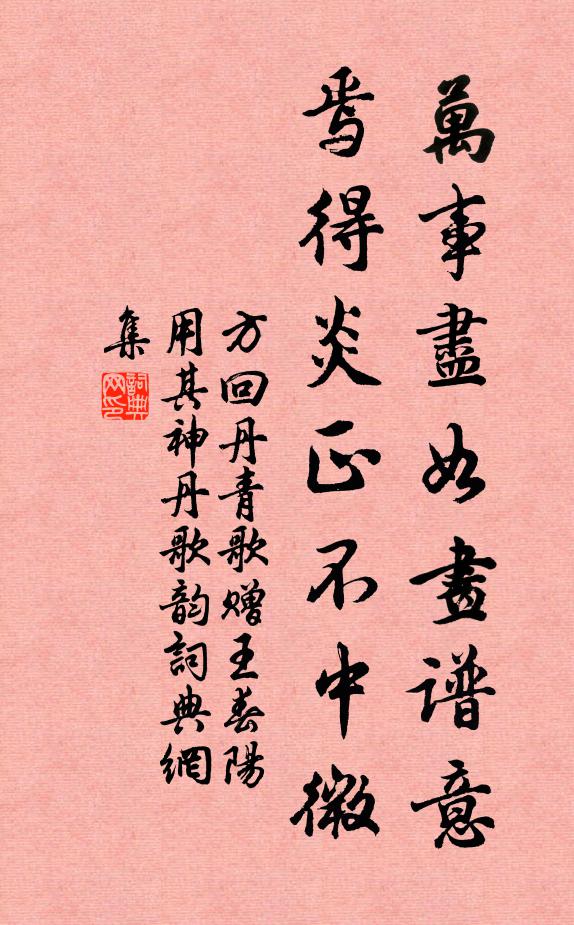 萬事盡如畫譜意
焉得炎正不中微
方回丹青歌贈王春陽
用其神丹歌韵詞典網
集
詞典
网印